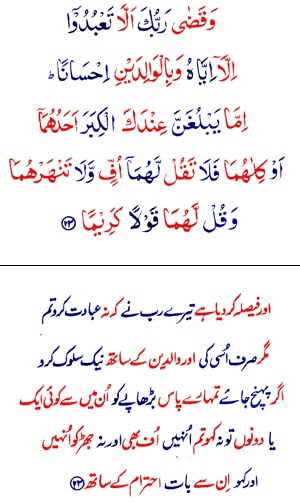 وَقَضٰى رَبُّكَ اَلَّا تَعْبُدُوْٓا
اِلَّآ اِيَّاهُ وَبِالْوَالِدَيْنِ اِحْسَانًا ط
اِمَّا يَبْلُغَنَّ عِنْدَكَ الْكِبَرَ اَحَدُهُمَآ
اَوْ كِلٰهُمَا فَلَا تَقُلْ لَّهُمَآ اُفٍّ وَّلَا تَنْهَرْهُمَا
وَقُلْ لَّهُمَا قَوْلًا كَرِيْمًا ﴿۲۳﴾
اور فیصلہ کر دیا ہے تیرے رب نے کہ نہ عبادت کرو تم
مگر صرف اُسی کی اور والدین کے ساتھ نیک سلوک کرو
اگر پہنچ جائے تمہارے پاس بڑھاپے کو اُن میں سے کوئی ایک
یا دونوں تو نہ کہو تم اُنہیں اُف بھی اور نہ جھڑکو اُنہیں
اور کہو اِن سے بات احترام کے ساتھ ﴿۲۳﴾